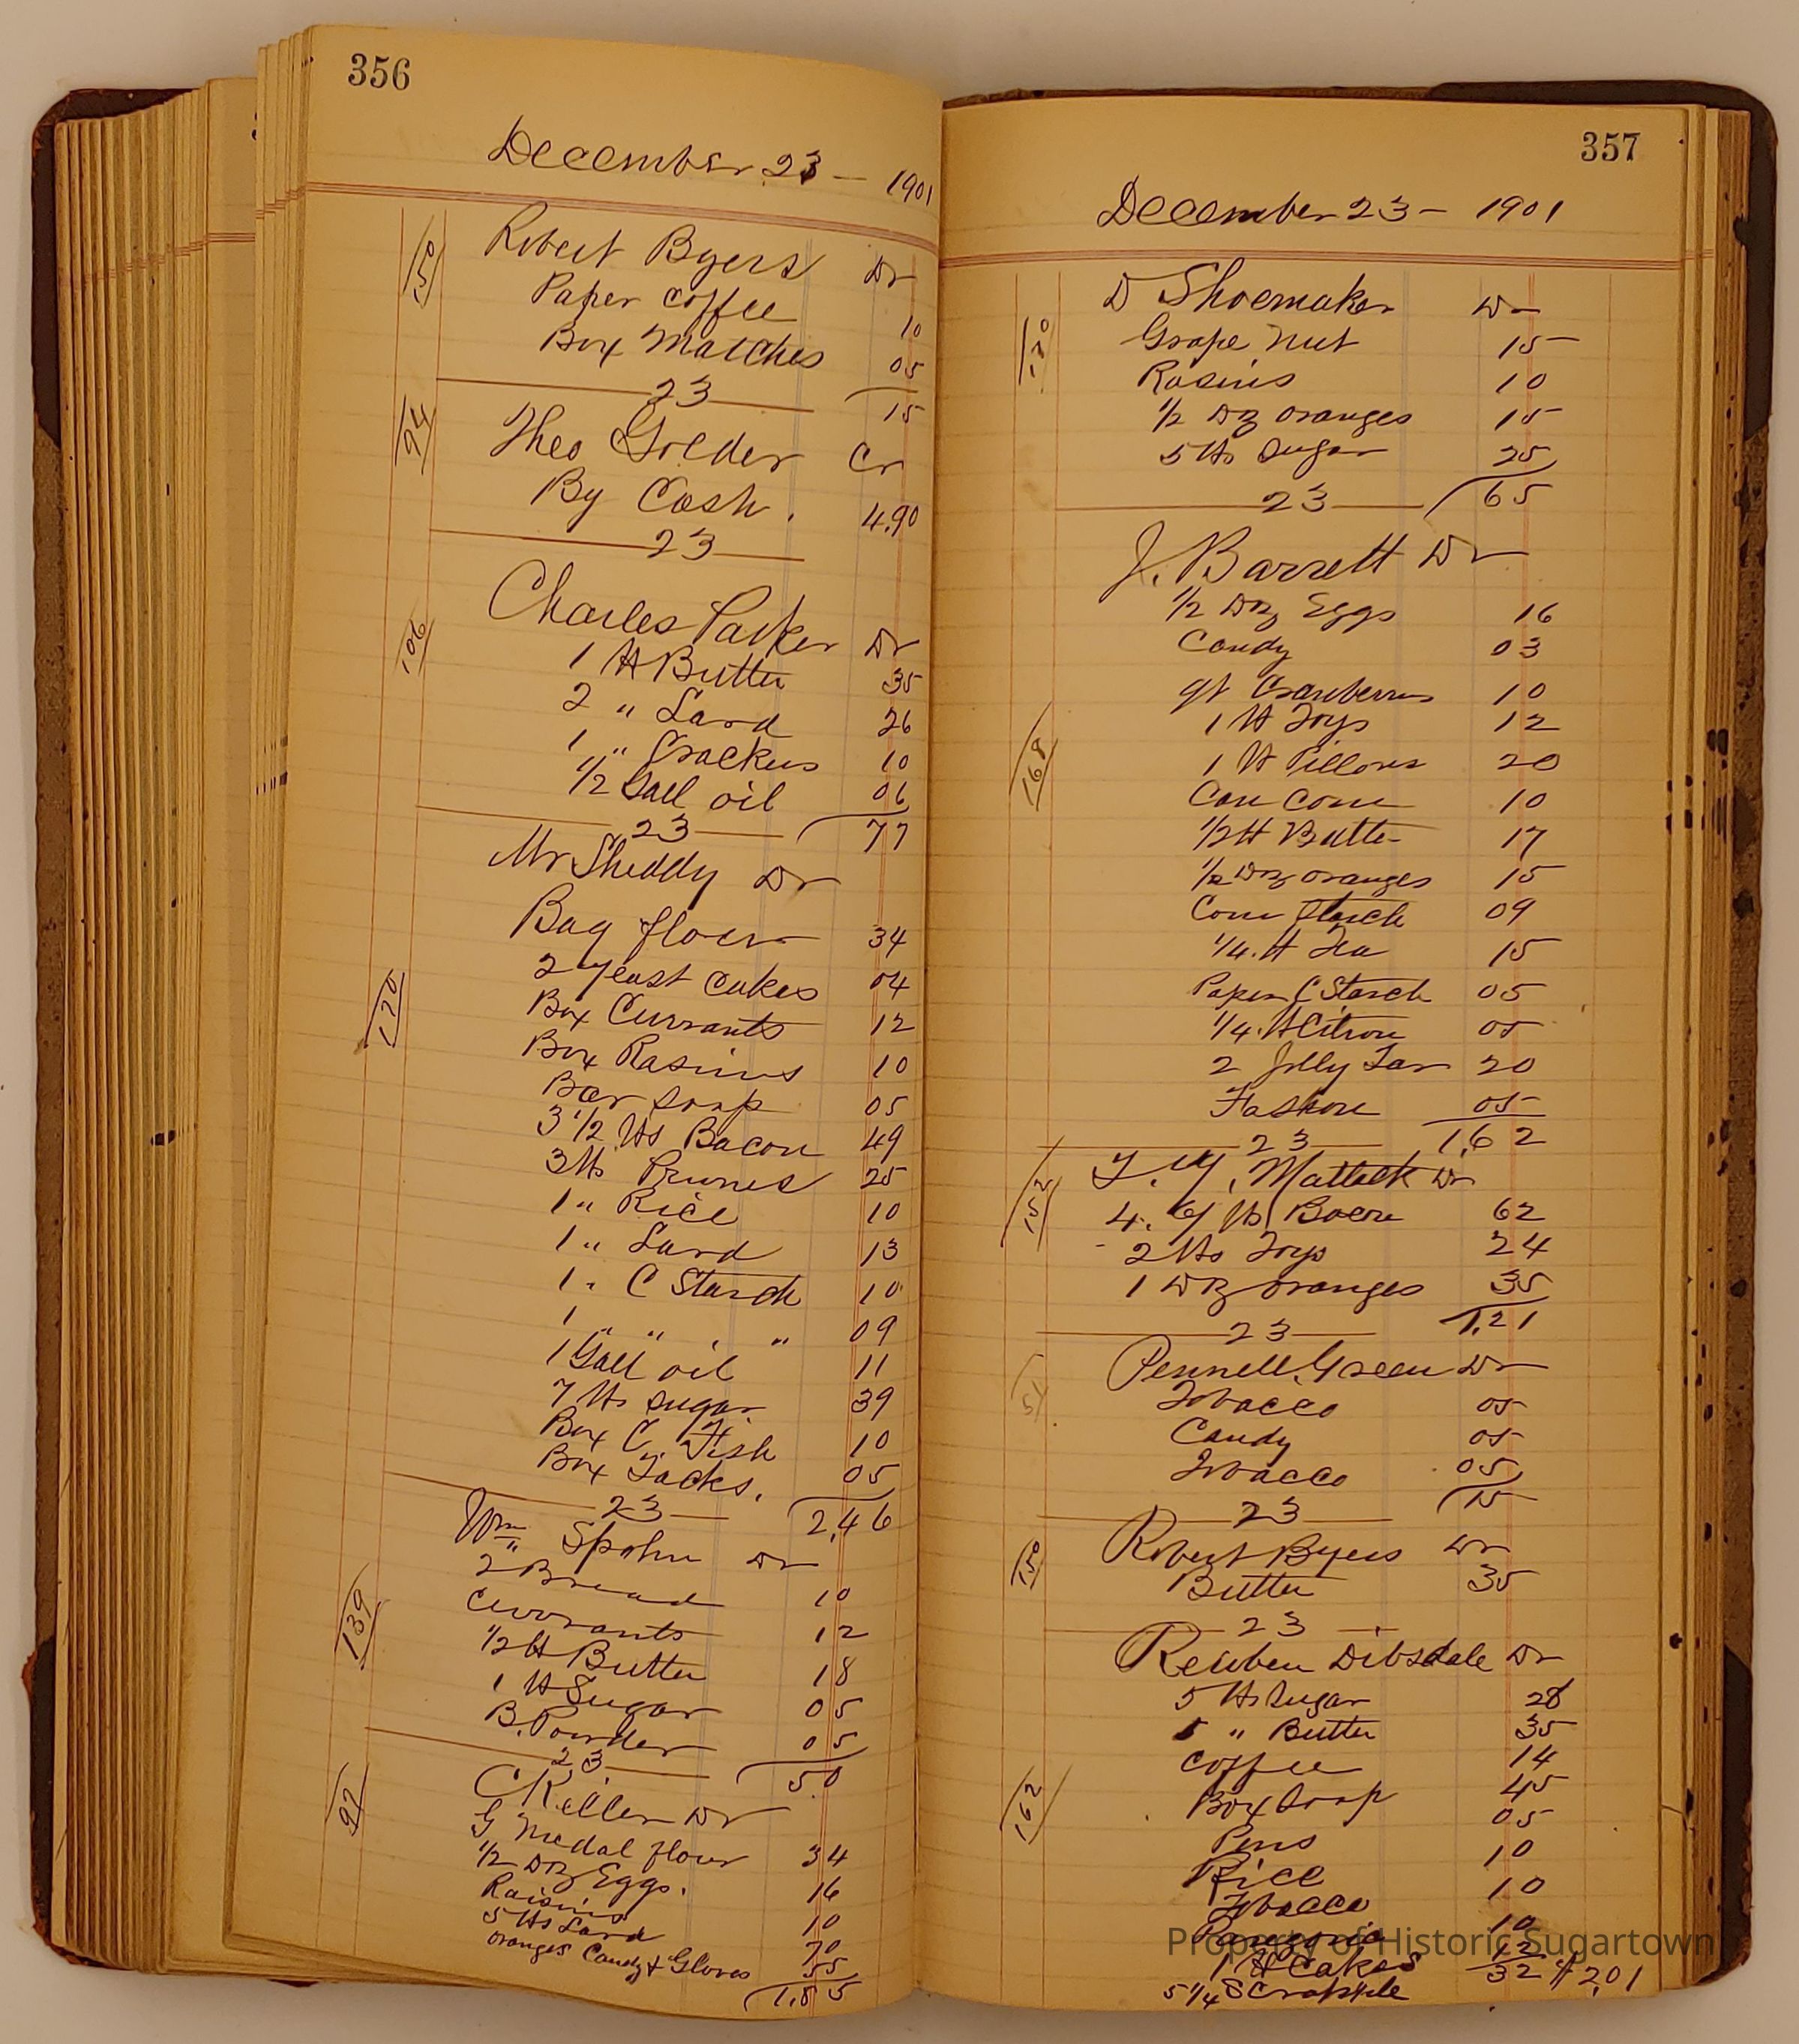 356
December 23 — 1901
150
Robert Byers Dr
Paper Coffee 10
Box Matches 05
23 15
94
Theo Golder Cr
By Cash. 4.90
23
106
Charles Parker Dr
1 lb Butter 35
2 " Lard 26
1 " Crackers 10
1/2 Gall oil 06
23 77
Mr Sheddy Dr
170
Bag flour 34
2 yeast cakes 04
Box Currants 12
Box Rasins 10
Bar soap 05
3 1/2 lbs Bacon 49
3 lbs Prunes 25
1 " Rice 10
1 " Lard 13
1 " C Starch 10
1 " " " 09
1 Gall oil 11
7 lbs sugar 39
Box C Fish 10
Box Tacks. 05
23 2,46
Wm Spohn Dr
139
2 Bread 10
Currants 12
1/2 lb Butter 18
1 lb Sugar 05
B. Powder 05
23 50
97
C Keller Dr
G Medal flour 34
1/2 Dz Eggs. 16
Raisins 10
5 lbs Lard 70
oranges Candy & Gloves 55
1.85
357
December 23 — 1901
D Shoemaker Dr
130
Grape Nut 15
Rasins 10
1/2 Dz oranges 15
5 lbs Sugar 25
23 65
J. Barrett Dr
168
1/2 Dz Eggs 16
Candy 03
qt Cranberries 10
1 lb Toys 12
1 lb 20
Can Corn 10
1/2 lb Butter 17
1/2 Dz oranges 15
Corn Starch 09
1/4 lb Tea 15
Paper C Starch 05
1/4 lb Citron 05
2 Jelly Jar 20
05
23 1,62
152
Matlack Dr
4. lbs Bacon 62
2 lbs Toys 24
1 Dz oranges 35
23 1,21
Pennell Green Dr
54
Tobacco 05
Candy 05
Tobacco 05
23 15
150
Robert Byers Dr
Butter 35
23
Reuben Dibsdale Dr
162
5 lbs Sugar 28
1 " Butter 35
Coffee 14
Box Soap 45
Pins 05
Rice 10
Tobacco 10
Paregoric 10
1 lb Cakes 12
5 1/4 Scrapple 32 $2,01
Property of Historic Sugartown